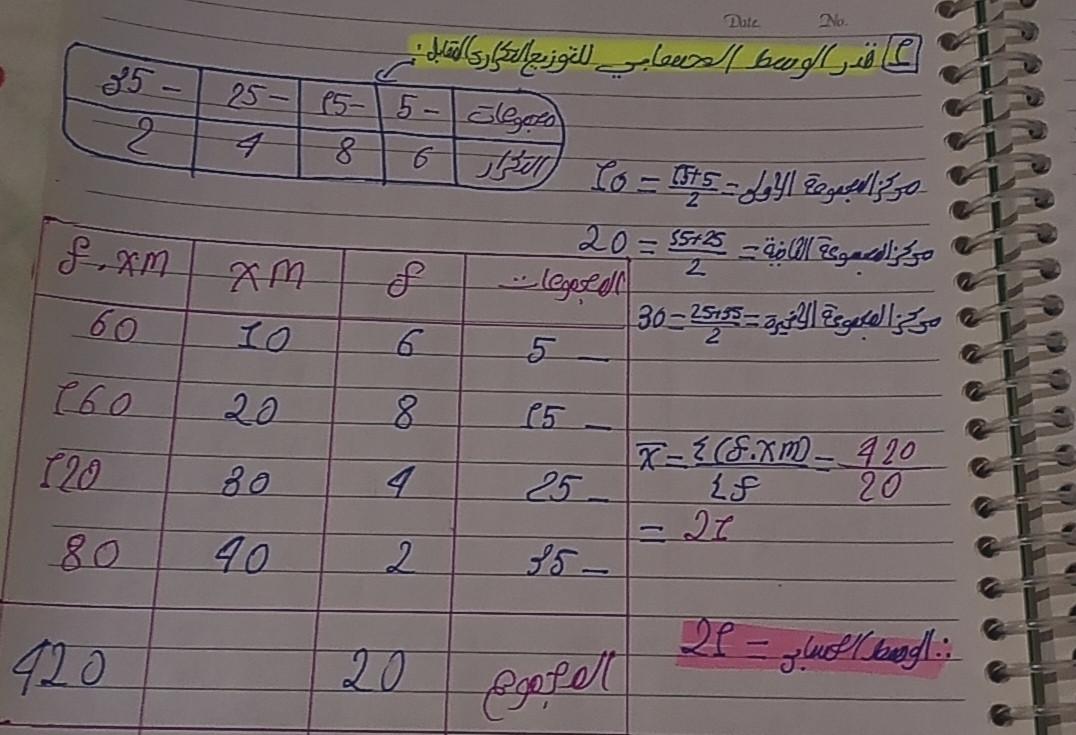 Date No.
1 قدر الوسط الحسابي للتوزيع التكراري التقابل:
مجموعات 5 – 15 – 25 – 35 –
التكرار 6 8 4 2
مركز المجموعة الأولى = 15+5/2 = 10
مركز المجموعة الثانية = 15+25/2 = 20
مركز المجموعة الأخيرة = 25+35/2 = 30
المجموعات f xm f.xm
5 – 6 10 60
15 – 8 20 160
25 – 4 30 120
35 – 2 40 80
المجموع 20 420
x̄ = Σ(f.xm)/Σf = 420/20
= 21
∴ الوسط الحسابي = 21